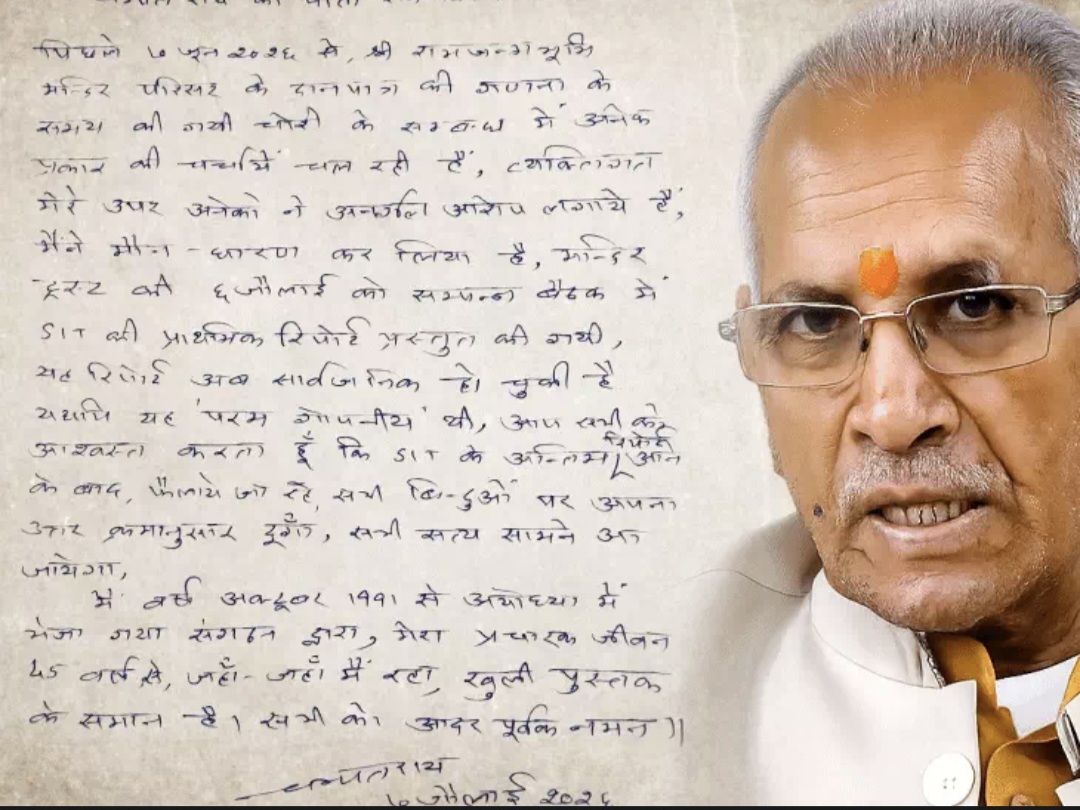 चम्पत राय की वार्ता
पिछले ७ जून २०२६ से, श्री रामजन्मभूमि
मन्दिर परिसर के दानपात्र की गणना के
समय की गयी चोरी के सम्बन्ध में अनेक
प्रकार की चर्चायें चल रही हैं, व्यक्तिगत
मेरे उपर अनेको ने अनर्गल आरोप लगाये हैं,
मैंने मौन-धारण कर लिया है, मन्दिर
ट्रस्ट की ६ जौलाई को सम्पन्न बैठक में
SIT की प्राथमिक रिपोर्ट प्रस्तुत की गयी,
यह रिपोर्ट अब सार्वजनिक हो चुकी है
यद्यपि यह 'परम गोपनीय' थी, आप सभी को
आश्वस्त करता हूँ कि SIT के अन्तिम रिपोर्ट आने
के बाद, फैलाये जा रहे, सभी बिन्दुओं पर अपना
उत्तर क्रमानुसार दूँगा, सभी सत्य सामने आ
जायेगा,
मैं वर्ष अक्टूबर 1991 से अयोध्या में
भेजा गया संगठन द्वारा, मेरा प्रचारक जीवन
45 वर्ष से, जहाँ-जहाँ मैं रहा, खुली पुस्तक
के समान है। सभी को आदर पूर्वक नमन॥
चम्पतराय
७ जौलाई २०२६